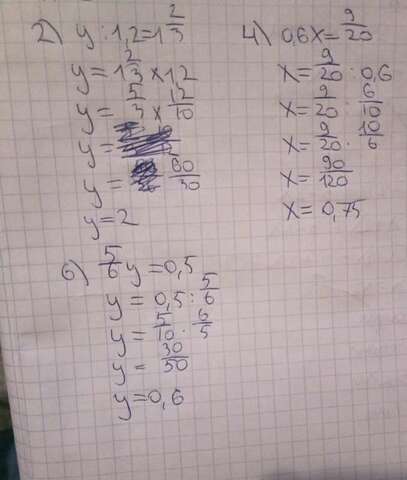 2) y : 1,2 = 1 2/3
y = 1 2/3 × 1,2
y = 5/3 × 12/10
y =
y = 60/30
y = 2
4) 0,6x = 9/20
x = 9/20 : 0,6
x = 9/20 : 6/10
x = 9/20 · 10/6
x = 90/120
x = 0,75
6) 5/6 y = 0,5
y = 0,5 : 5/6
y = 5/10 · 6/5
y = 30/50
y = 0,6